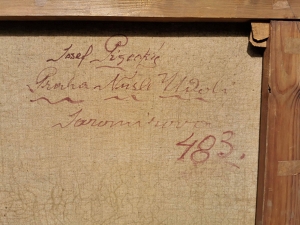 Josef
Praha Nusle Údolí
Jaromírova
483.